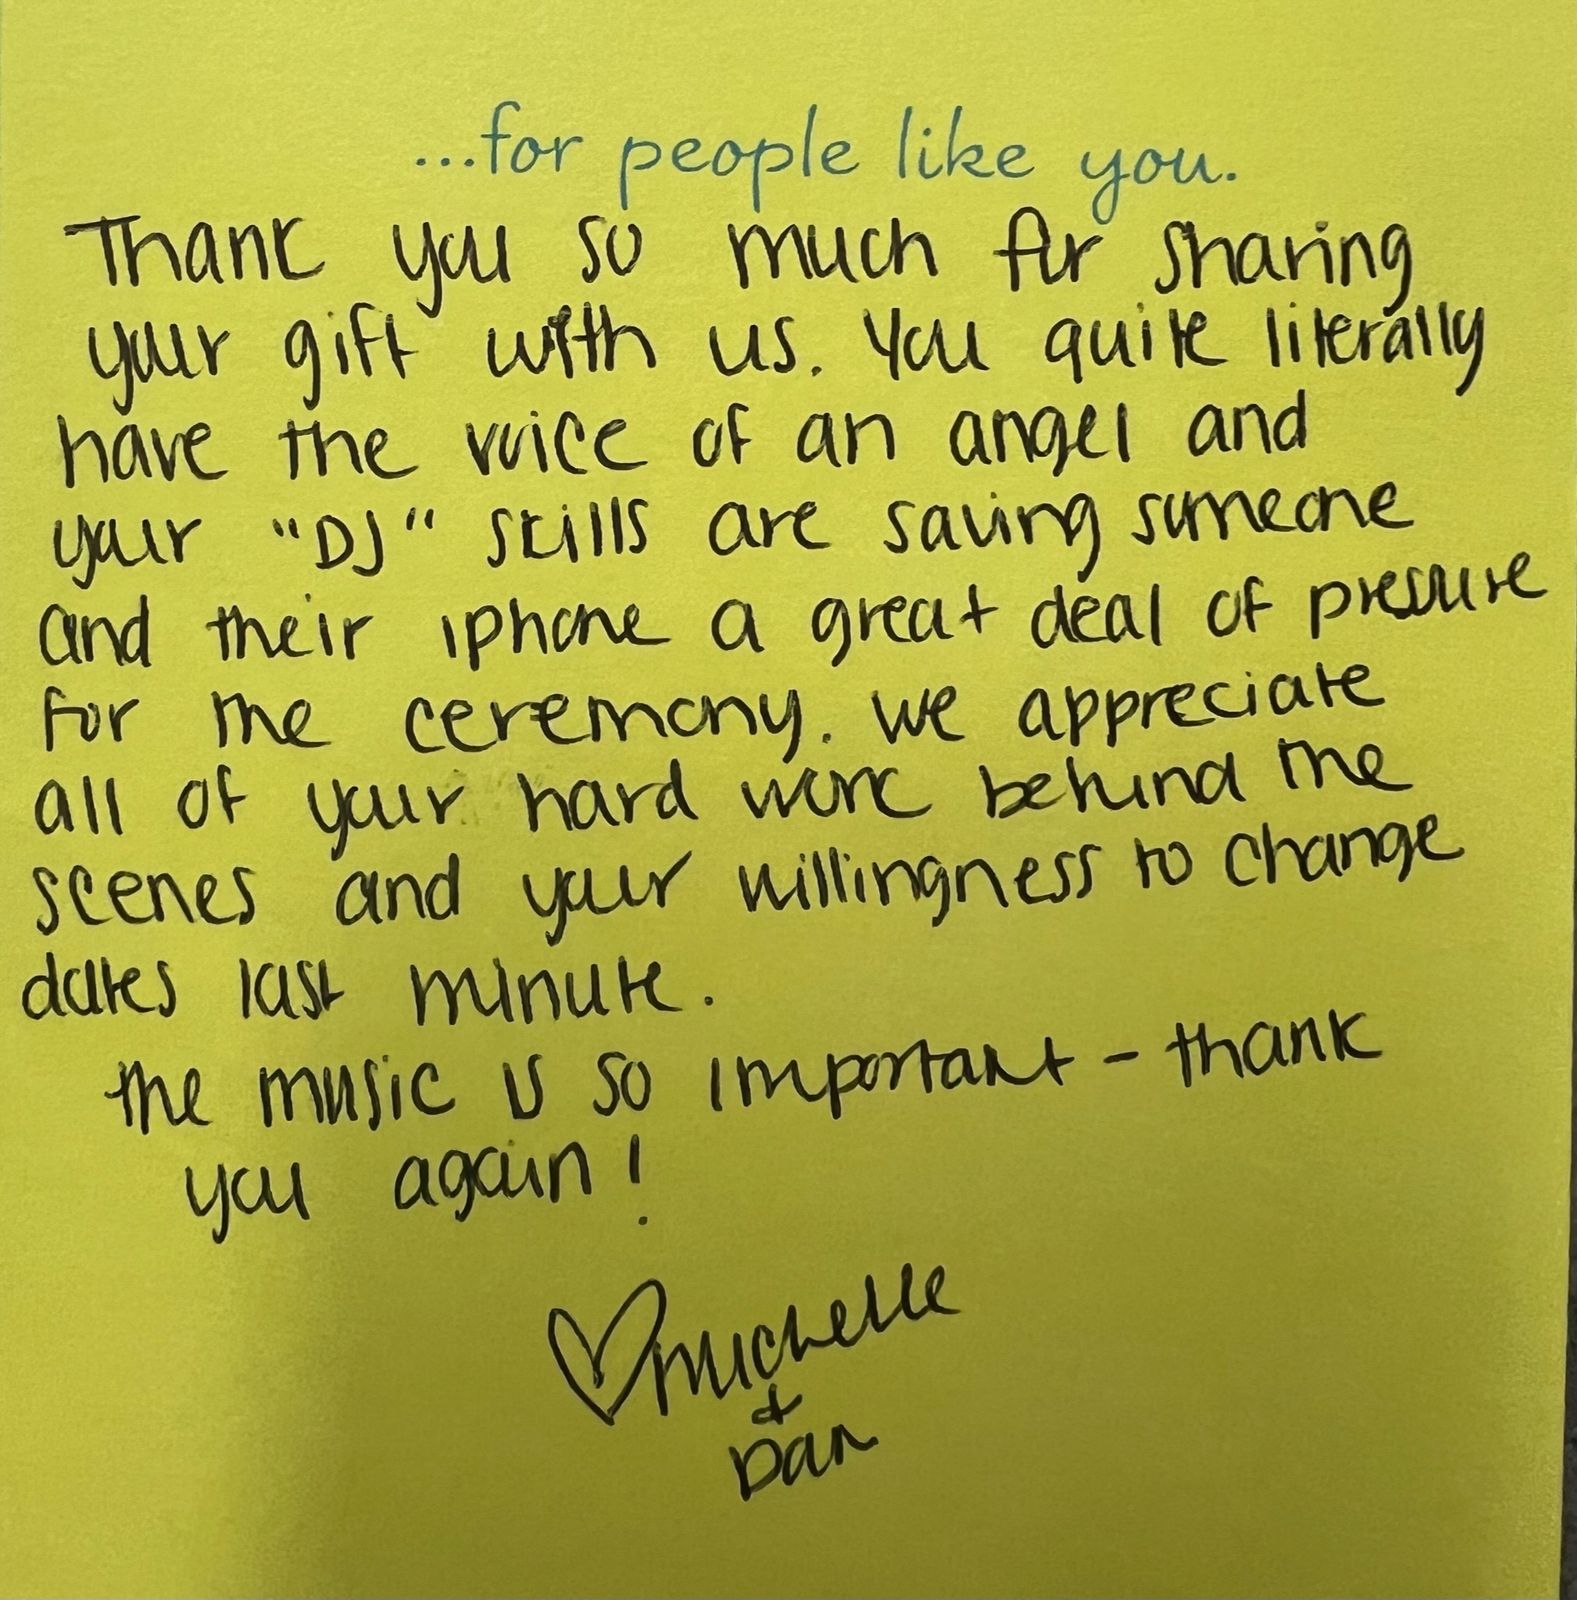 ...for people like you.
Thank you so much for sharing
your gift with us. You quite literally
have the voice of an angel and
your "DJ" skills are saving someone
and their iphone a great deal of pressure
for the ceremony. We appreciate
all of your hard work behind the
scenes and your willingness to change
dates last minute.
The music is so important - thank
you again!
♡ Michelle
&
Dan